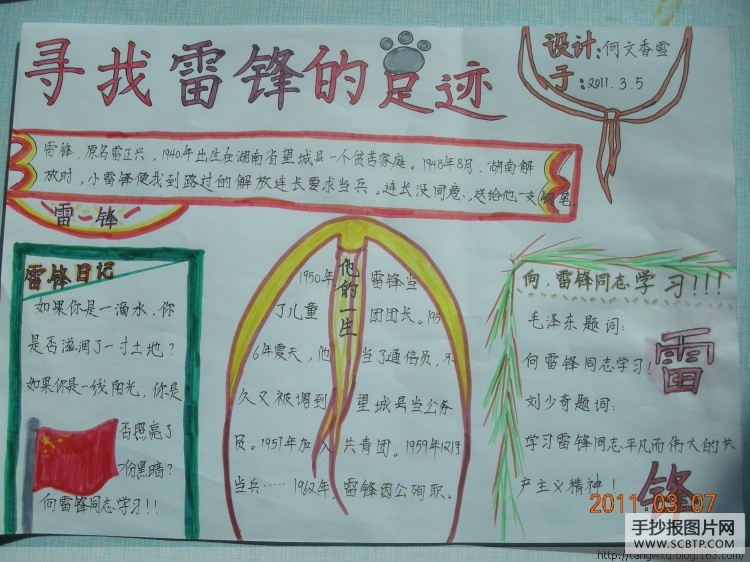 寻找雷锋的足迹
设计:何文香雪
于:2011.3.5
雷锋,原名雷正兴,1940年出生在湖南省望城县一个贫苦家庭。1948年8月,湖南解
放时,小雷锋便找到路过的解放连长要求当兵。连长没同意、送给他一支钢笔.
雷锋
雷锋日记
如果你是一滴水,你
是否滋润了一寸土地?
如果你是一线阳光,你是
否照亮了
一份黑暗?
向雷锋同志学习!!
他的一生
1950年雷锋当
了儿童团团长。195
6年夏天,他当了通信员,不
久又被调到望城县当公务
员。1957年加入共青团。1959年12月
当兵……1962年,雷锋因公殉职。
向,雷锋同志学习!!!
毛泽东题词:
向雷锋同志学习!
刘少奇题词:
学习雷锋同志平凡而伟大的共
产主义精神!
雷
锋
2011.03.07
手抄报图片网
WWW.SCBTP.COM
http://tangwxq.blog.163.com/